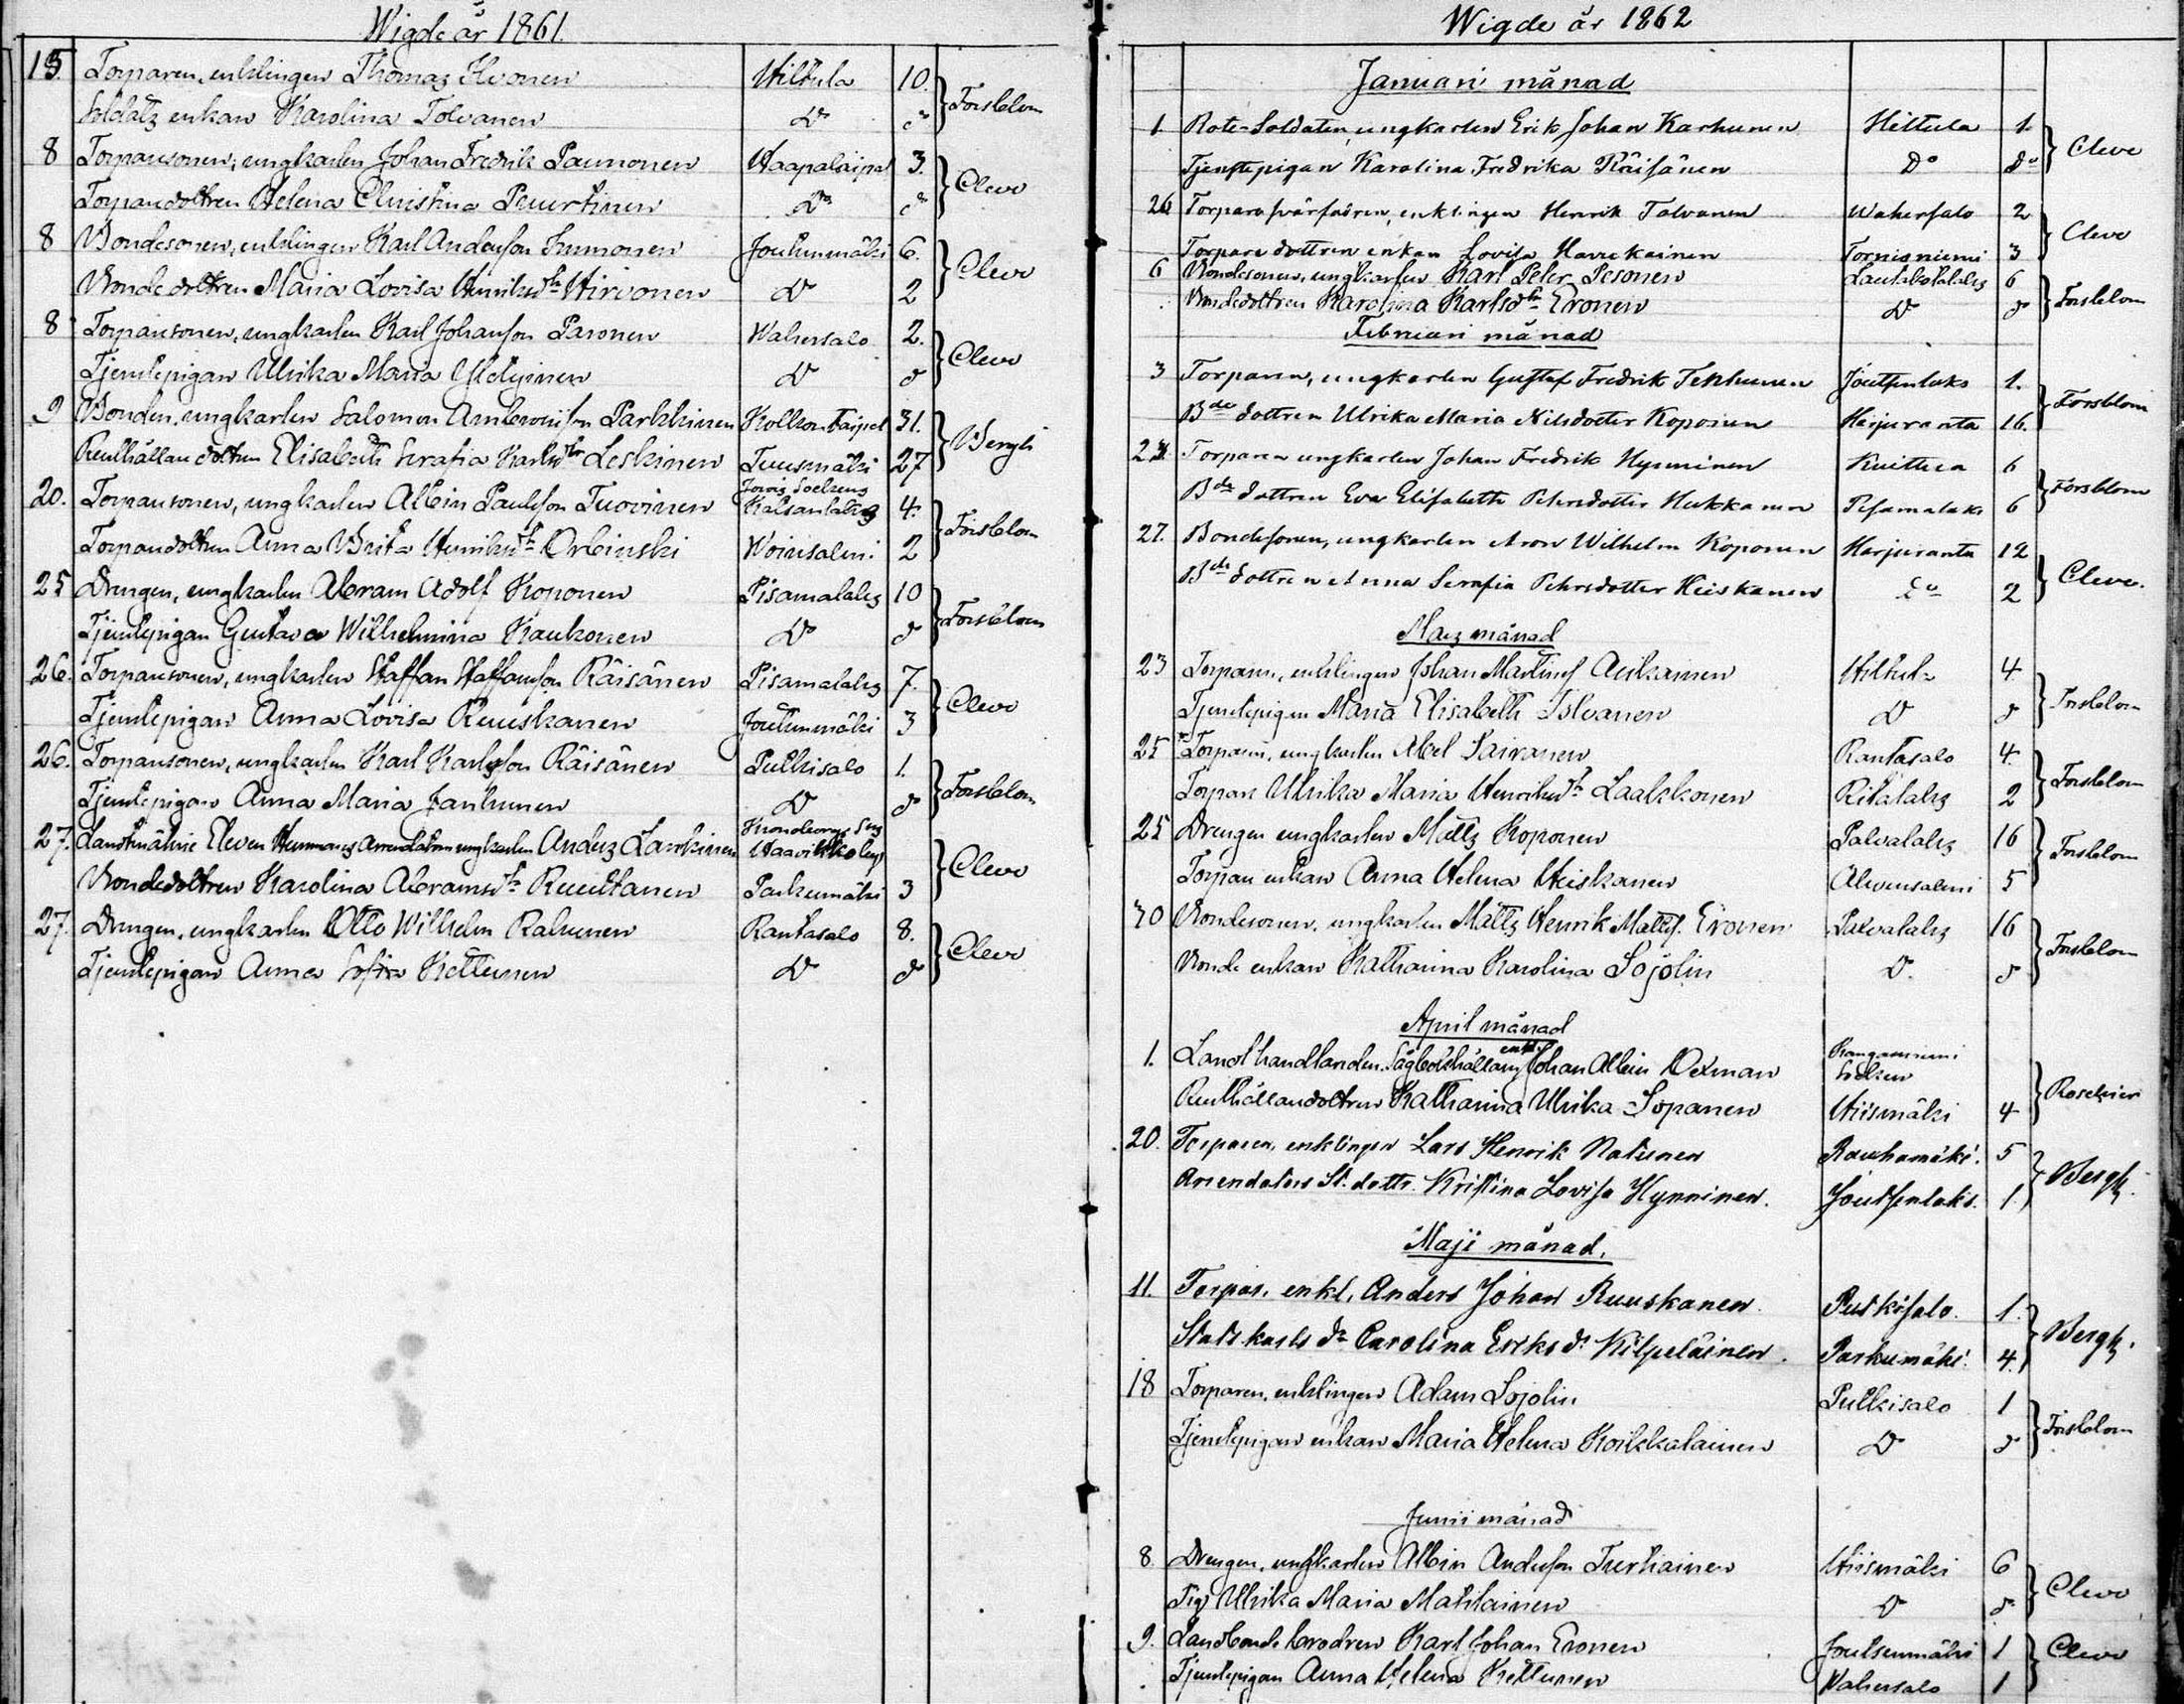 Wigde år 1861.
15. Torparen, enklingen Thomas Ilvonen Hiltula 10. Forsblom
Soldats enkan Karolina Tolvanen Do do
8 Torparesonen, ungkarlen Johan Fredrik Paunonen Haapataipal 3. Cleve
Torparedottren Helena Christina Puurtinen Do do
8 Bondesonen, enklingen Karl Andersson Immonen Joutsenmäki 6. Cleve
Bondedottren Maria Lovisa Henriksdr Hirvonen Do 2
8 Torparesonen, ungkarlen Karl Johansson Paronen Wahersalo 2. Cleve
Tjenstepigan Ulrika Maria Do do
9 Bonden, ungkarlen Salomon Parkkinen Kolkontaipal 31. Bergh
Rusthållaredottren Elisabeth Serafia Karlsdr Leskinen Tuusmäki 27
20. Torparesonen, ungkarlen Albin Paulsson Tuovinen Jorois Socken 4. Forsblom
Torparedottren Anna Brita Henriksdr Orbinski Woinsalmi 2
25 Drengen, ungkarlen Abram Adolf Koponen Pisamalaks 10 Forsblom
Tjenstepigan Gustava Wilhelmina Kaukonen Do do
26. Torparesonen, ungkarlen Staffan Staffansson Räisänen Pisamalaks 7. Cleve
Tjenstepigan Anna Lovisa Ruuskanen Joutsenmäki 3
26. Torparesonen, ungkarlen Karl Karlsson Räisänen Putkisalo 1. Forsblom
Tjenstepigan Anna Maria Janhunen Do do
27. Landtmäterie Eleven Hemmans Arrendatorn ungkarlen Anders Laukkinen Kronoborgs Sn Cleve
Bondedottren Karolina Abramsdr Ruuttanen Parkumäki 3
27. Drengen, ungkarlen Otto Wilhelm Rahunen Rantasalo 8. Cleve
Tjenstepigan Anna Sofia Kettunen Do do
Wigde år 1862
Januari månad
1 Rote-Soldaten, ungkarlen Erik Johan Karhunen Hiltula 1. Cleve
Tjenstepigan Karolina Fredrika Räisänen Do do
26 Torparesvärfadren, enklingen Henrik Tolvanen Wahersalo 2 Cleve
Torparedottren enkan Lovisa Haverinen Tornioniemi 3
6 Bondesonen, ungkarlen Karl Peter Pesonen Lautakotalaks 6 Forsblom
Bondedottren Karolina Karlsdr Eronen Do do
Februari månad
3 Torparen, ungkarlen Gustaf Fredrik Tenhunen Joutsenlaks 1. Forsblom
Bde dottren Ulrika Maria Nilsdotter Koponen Harjuranta 16.
23. Torparen ungkarlen Johan Fredrik Hynninen Kiittula 6 Forsblom
Bde dottren Eva Elisabeth Pehrsdotter Hukkanen Pisamalaks 6
27. Bondesonen, ungkarlen Aron Wilhelm Koponen Harjuranta 12 Cleve.
Bde dottren Anna Serafia Pehrsdotter Heiskanen Do 2
Mars månad
23 Torparen, enklingen Johan Martinss. Auikainen Hiltula 4. Forsblom
Tjenstepigan Maria Elisabeth Tolvanen Do do
25 Torparen, ungkarlen Abel Sairanen Rantasalo 4. Forsblom
Torpare Ulrika Maria Henriksdr Laakkonen Ritalaks 2
25 Drengen ungkarlen Matts Koponen Palvalaks 16 Forsblom
Torpare enkan Anna Helena Heiskanen Ahvensalmi 5
30 Bondesonen, ungkarlen Matts Henrik Mattss. Eronen Palvalaks 16 Forsblom
Bonde enkan Katharina Karolina Sojolin Do do
April månad
1. Landthandlanden, Sågbokhållaren enkl. Johan Albin Oxman Kangasniemi Socken Roschier
Rusthållaredottren Katharina Ulrika Sopanen Hiismäki 4
20. Torparen, enklingen Lars Henrik Natunen Rauhamäki. 5 Bergh.
Arrendators St. dottr. Kristina Lovisa Hynninen. Joutsenlaks. 1.
Maji månad.
11. Torpar. enkl. Anders Johan Ruuskanen. Putkisalo. 1. Bergh.
Statskarls dr Carolina Eriks dr Kilpeläinen. Parkumäki. 4.
18 Torparen, enklingen Adam Sojolin Putkisalo 1 Forsblom
Tjenstepigan enkan Maria Helena Koikkalainen Do do
Junii månad
8. Drengen, ungkarlen Albin Andersson Turtiainen Hiismäki 6 Cleve
Pig. Ulrika Maria Mahlainen Do do
9. Landbonde brodren Karl Johan Eronen Joutsenmäki 1 Cleve
Tjenstepigan Anna Helena Kettunen Wahersalo 1